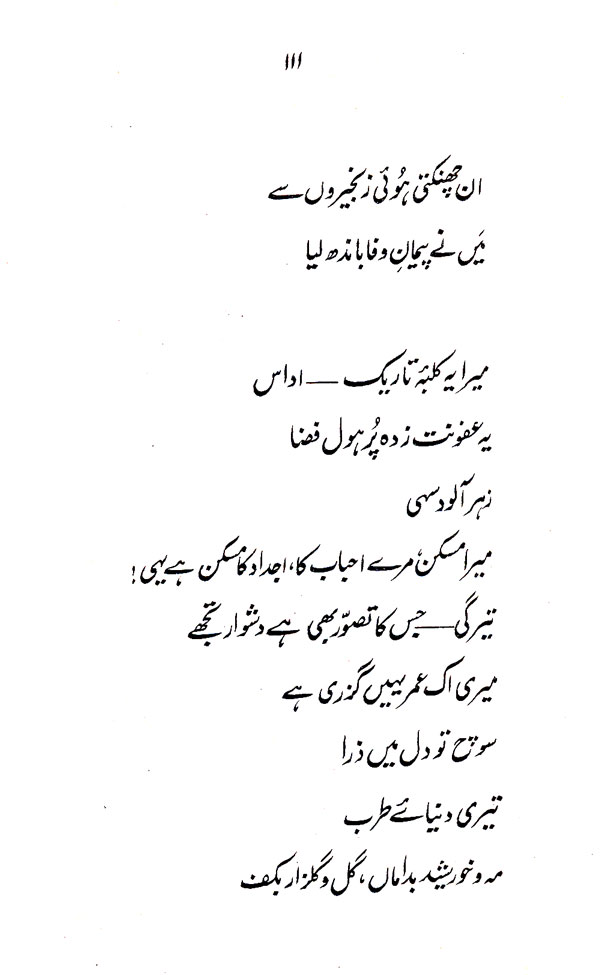 ۱۱۱
ان چھنکتی ہُوئی زنجیروں سے
مَیں نے پیمانِ وفا باندھ لیا
میرا یہ کلبۂ تاریک — اداس
یہ عفونت زدہ پُر ہول فضا
زہر آلود سہی
میرا مسکن، مرے احباب کا، اجداد کا مسکن ہے یہی!
تیرگی — جس کا تصوّر بھی ہے دشوار تجھے
میری اک عمر یہیں گزری ہے
سوچ تو دل میں ذرا
تیری دنیائے طرب
مہ و خورشید بداماں، گل و گلزار بکف